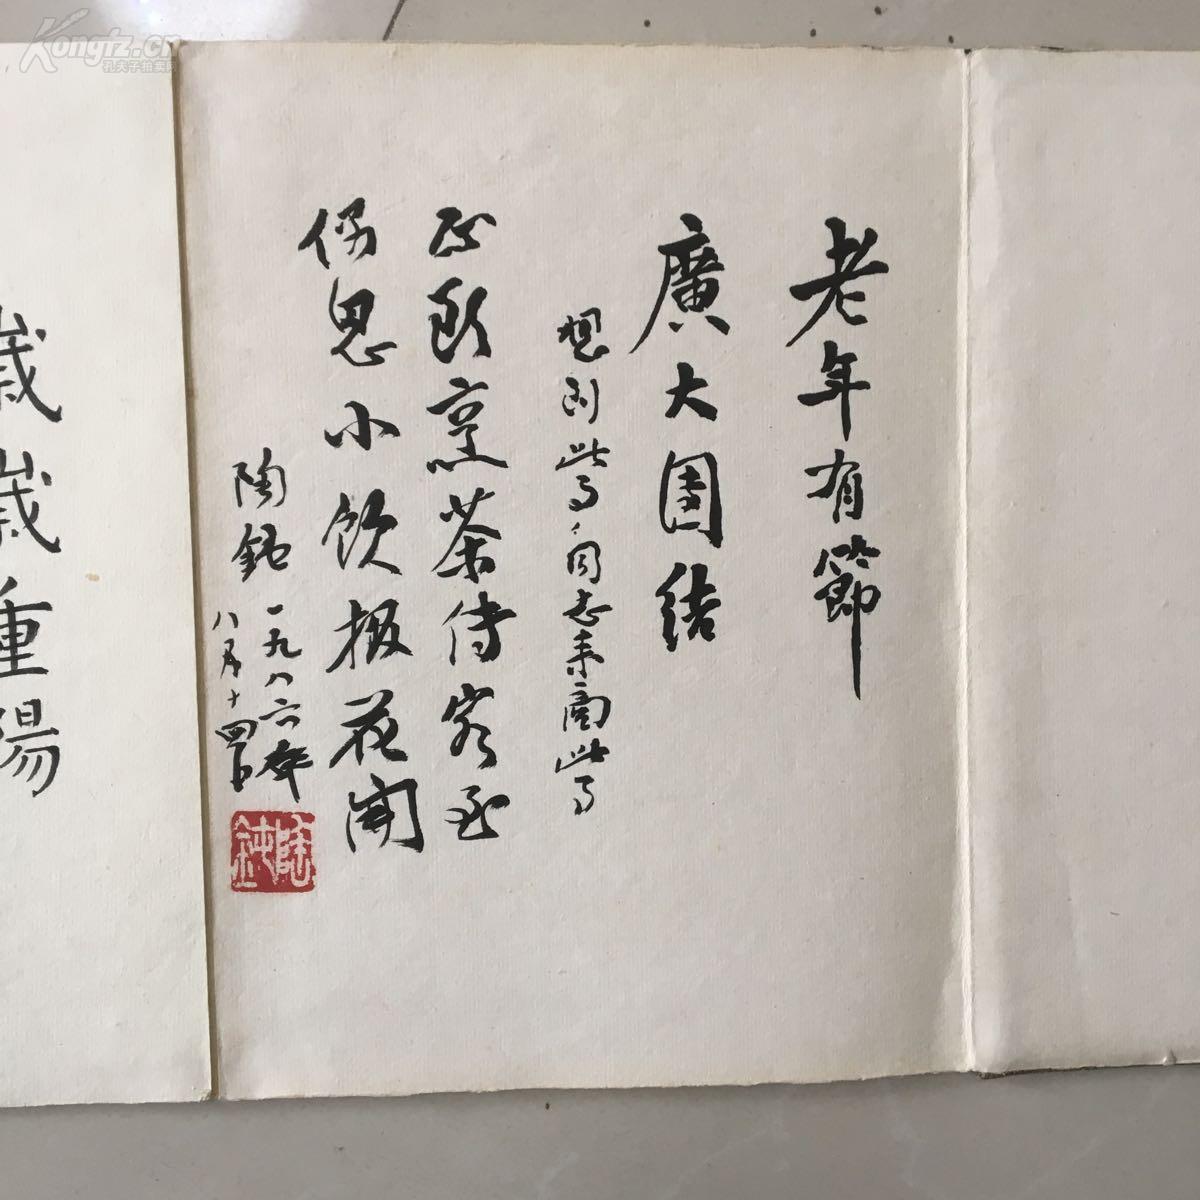 老年有節
廣大團結
想到此當与同志来商此当
正欲烹茶待客至
偶思小飲报花開
陶鈍 一九八六年
八月十四日
陶鈍
歲歲重陽
Kongfz.cn
孔夫子拍卖网